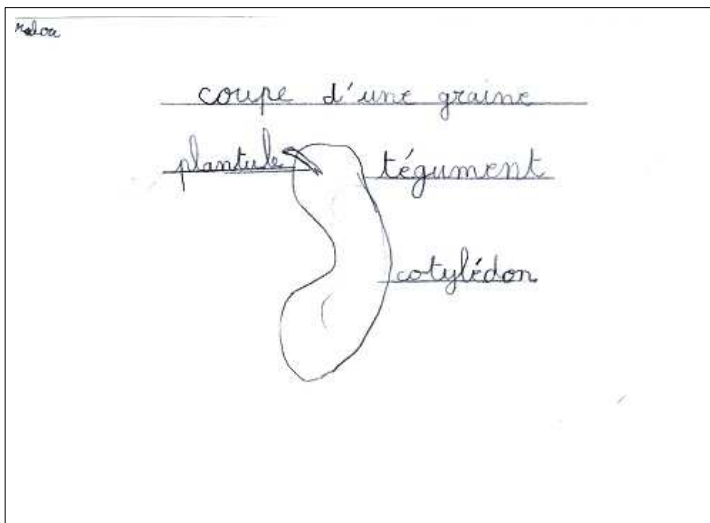 coupe d'une graine
plantule
tégument
cotylédon